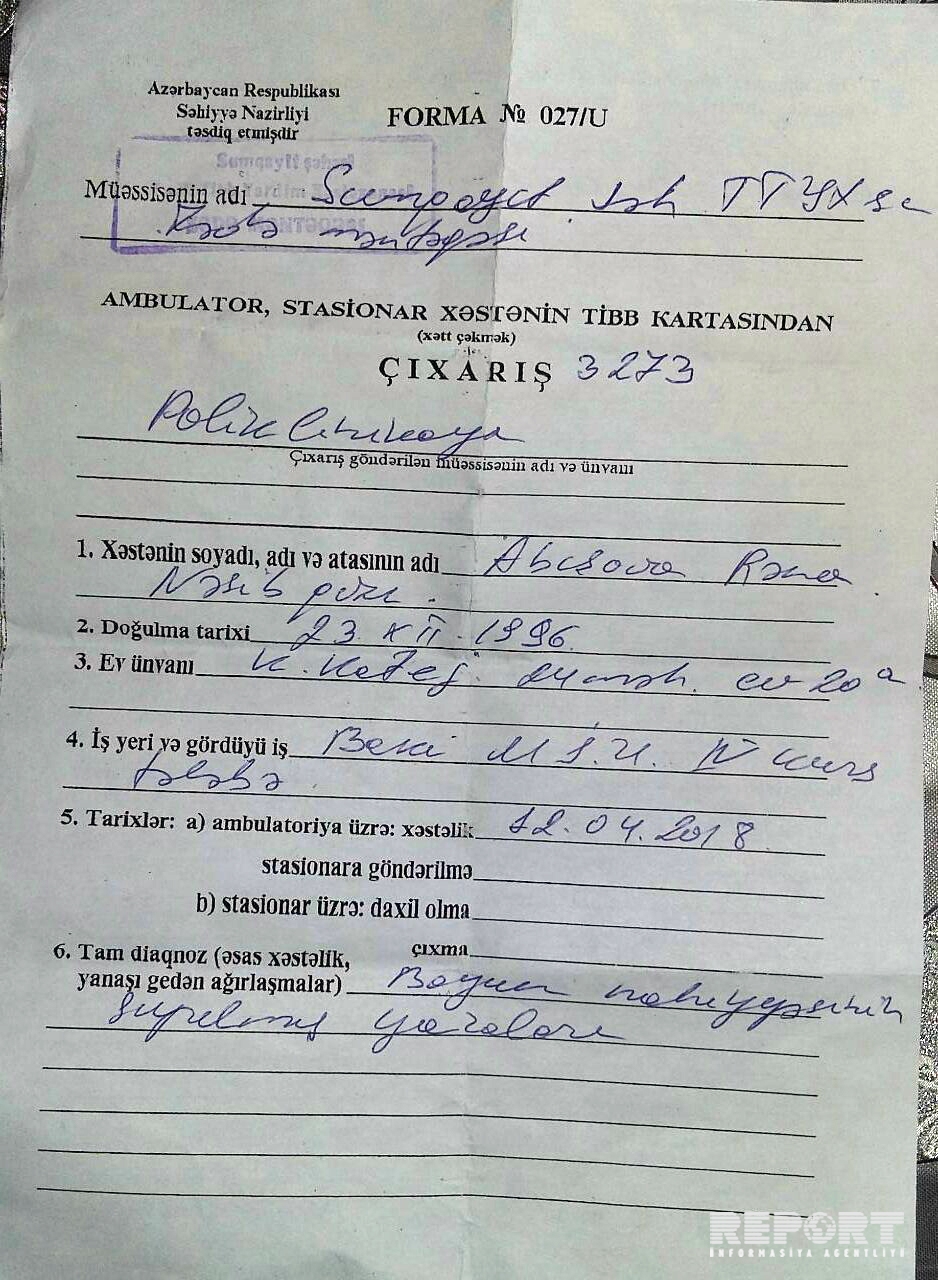 Azərbaycan Respublikası
Səhiyyə Nazirliyi
təsdiq etmişdir
FORMA № 027/U
Sumqayıt şəhəri
Müəssisənin adı Sumqayıt şəh TTYXS
məntəqəsi
AMBULATOR, STASİONAR XƏSTƏNİN TİBB KARTASINDAN
(xətt çəkmək)
ÇIXARIŞ 3273
Poliklinikaya
Çıxarış göndərilən müəssisənin adı və ünvanı
1. Xəstənin soyadı, adı və atasının adı Abışova Rəna
Nəsib qızı.
2. Doğulma tarixi 23. XII. 1996
3. Ev ünvanı ev 20a
4. İş yeri və gördüyü iş Bakı IV kurs
tələbə
5. Tarixlər: a) ambulatoriya üzrə: xəstəlik 12.04.2018
stasionara göndərilmə
b) stasionar üzrə: daxil olma
çıxma
6. Tam diaqnoz (əsas xəstəlik,
yanaşı gedən ağırlaşmalar) Boyun nahiyyəsinin
yaraları
REPORT
İNFORMASİYA AGENTLİYİ